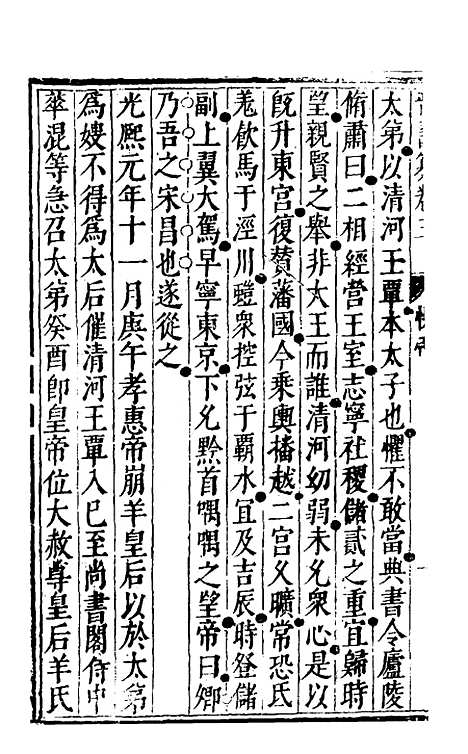 太弟以清河王覃本太子也懼不敢當典書令廬陵
脩肅曰二相經營王室志寧社稷儲貳之重宜歸時
望親賢之舉非大王而誰清河幼弱未允衆心是以
旣升東宮復贊藩國今乘輿播越二宮久曠常恐氐
羗飲馬于涇川螘衆控弦于霸水宜及吉辰時登儲
副上翼大駕早寧東京下允黔首喁喁之望帝曰卿
乃吾之宋昌也遂從之
光熙元年十一月庚午孝惠帝崩羊皇后以於太弟
爲嫂不得爲太后催清河王覃入已至尚書閣侍中
華混等急召太弟癸酉卽皇帝位大赦尊皇后羊氏